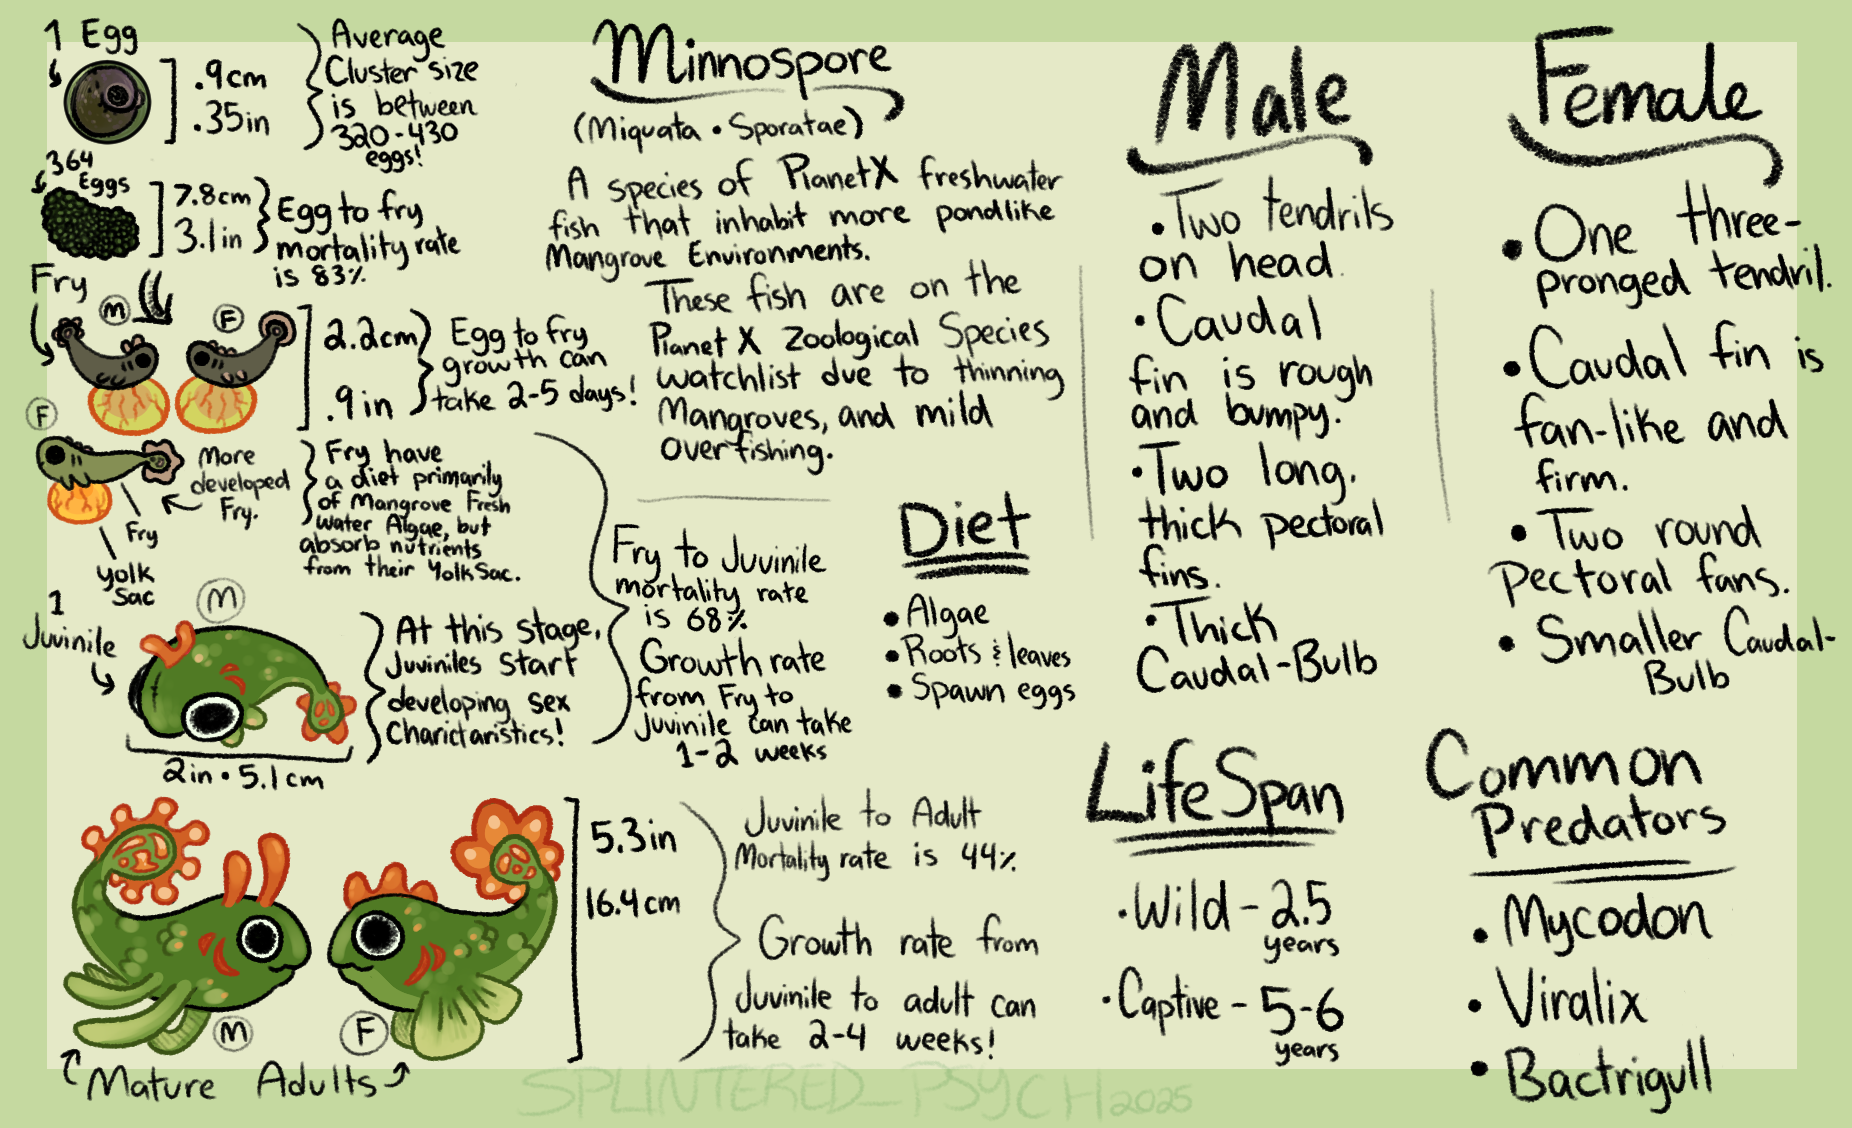 1 Egg
.9cm
.35in
Average
Cluster size
is between
320-430
eggs!
364
Eggs
7.8cm
3.1in
Egg to fry
mortality rate
is 83%
Fry
M
F
2.2cm
.9in
Egg to fry
growth can
take 2-5 days!
F
More
developed
Fry.
Fry
Yolk
Sac
Fry have
a diet primarily
of Mangrove Fresh
Water Algae, but
absorb nutrients
from their Yolk Sac.
1
Juvinile
M
2in • 5.1cm
At this stage,
Juviniles start
developing sex
Charictaristics!
Fry to Juvinile
mortality rate
is 68%
Growth rate
from Fry to
Juvinile can take
1-2 weeks
M
F
Mature Adults
5.3in
16.4cm
Juvinile to Adult
Mortality rate is 44%
Growth rate from
Juvinile to adult can
take 2-4 weeks!
Minnospore
(Miquata • Sporatae)
A species of Planet X freshwater
fish that inhabit more pondlike
Mangrove Environments.
These fish are on the
Planet X Zoological Species
watchlist due to thinning
Mangroves, and mild
overfishing.
Diet
• Algae
• Roots & leaves
• Spawn eggs
Male
• Two tendrils
on head.
• Caudal
fin is rough
and bumpy.
• Two long,
thick pectoral
fins.
• Thick
Caudal-Bulb
Female
• One three-
pronged tendril.
• Caudal fin is
fan-like and
firm.
• Two round
pectoral fans.
• Smaller Caudal-
Bulb
LifeSpan
• Wild - 2.5
years
• Captive - 5-6
years
Common
Predators
• Mycodon
• Viralix
• Bactrigull
SPLINTERED_PSYCH2025